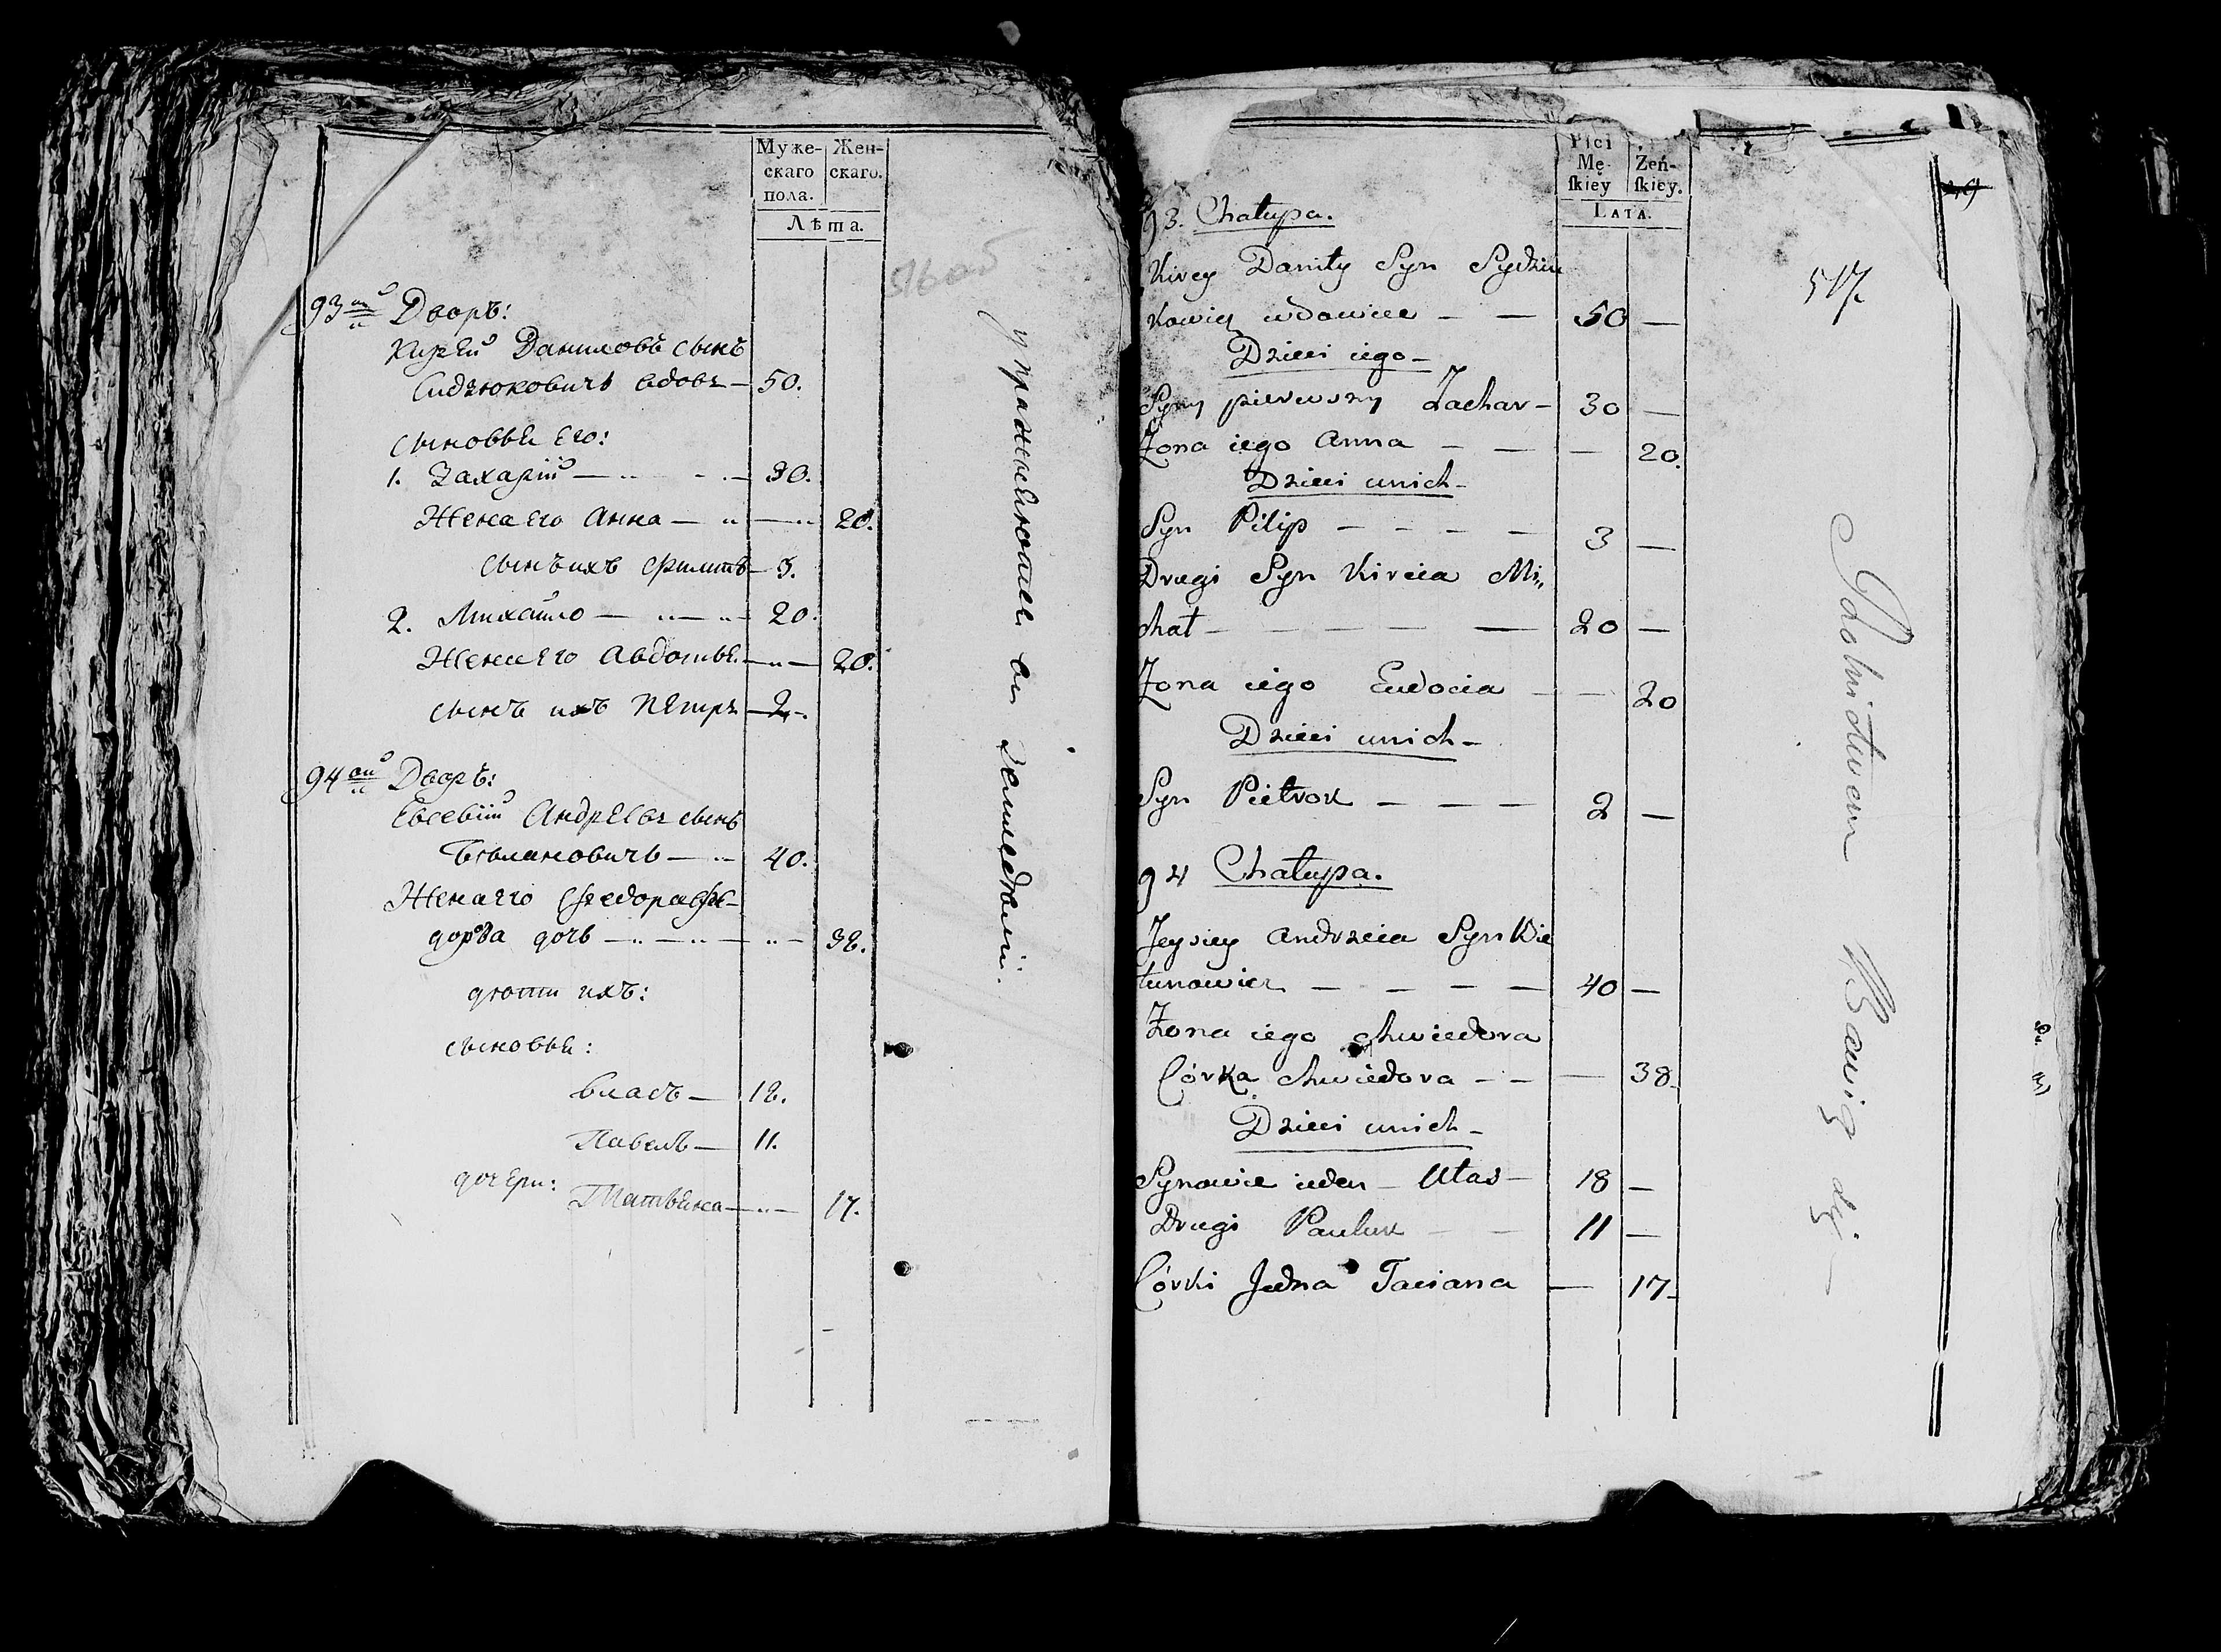 Муже-
скаго
пола.
Жен-
скаго.
Лѣта.
516 об
93ий Дворъ:
Кирей Даниловъ сынъ
Сидзюковичъ вдовъ — 50.
сыновья его:
1. Захарій — 30.
Жена его Анна — 20.
сынъ ихъ Филипъ — 3.
2. Михайло — 20.
Жена его Авдотья — 20.
сынъ ихъ Петръ — 2.
94ий Дворъ:
Евсевій Андреевъ сынъ
40.
Жена его Федора Фе-
дорова дочь — 38.
дѣти ихъ:
сыновья:
Власъ — 18.
Павелъ — 11.
дочери:
Татьяна — 17.
упражняются въ земледѣліи.
Płci
Mę-
skiey
Żeń-
skiey.
LATA.
517.
93. Chałupa.
Kirey Daniły Syn Sydziu
kowicz wdowiec — — 50 —
Dzieci iego —
Syny pierwszy Zachar — 30 —
Żona iego Anna — — — 20.
Dzieci unich —
Syn Pilip — — — — 3 —
Drugi Syn Kireia Mi„
chał — — — — — 20 —
Żona iego Eudocia — — 20
Dzieci unich —
Syn Pietrok — — — 2 —
94 Chałupa.
Jeysiey Andrzeia Syn Bie
łunowicz — — — — 40 —
Żona iego Chwiedora
Córka Chwiedora — — — 38
Dzieci unich —
Synowie ieden — Ułas — 18 —
Drugi Pauluk — — 11 —
Córki Jedna Taciana — 17 —
Rolnictwem Bawią się —